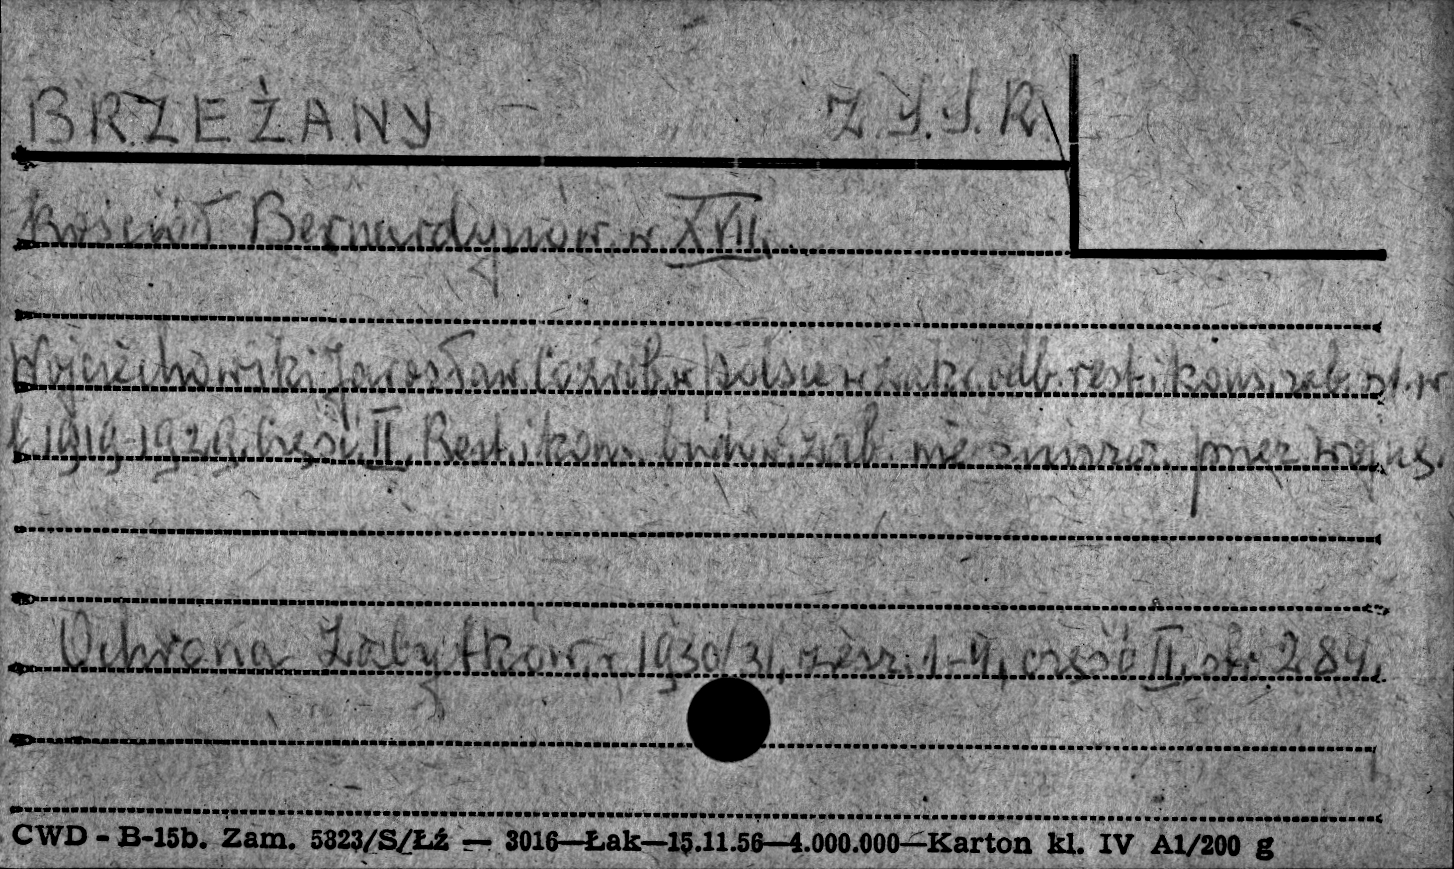 BRZEŻANY – Z.S.S.R.
Kościół Bernardynów w XVII.
Wojciechowski Jarosław w Polsce w zakr. odb. rest. i kons. zab. st. w
l. 1919-1929. Część II. Rest. i kons. zab. nie zniszcz. przez wojnę.
Ochrona Zabytków, 1930/31, zesz. 1-4, część II, st. 284.
CWD - B-15b. Zam. 5823/S/Łź — 3016—Łak—15.11.56—4.000.000—Karton kl. IV A1/200 g